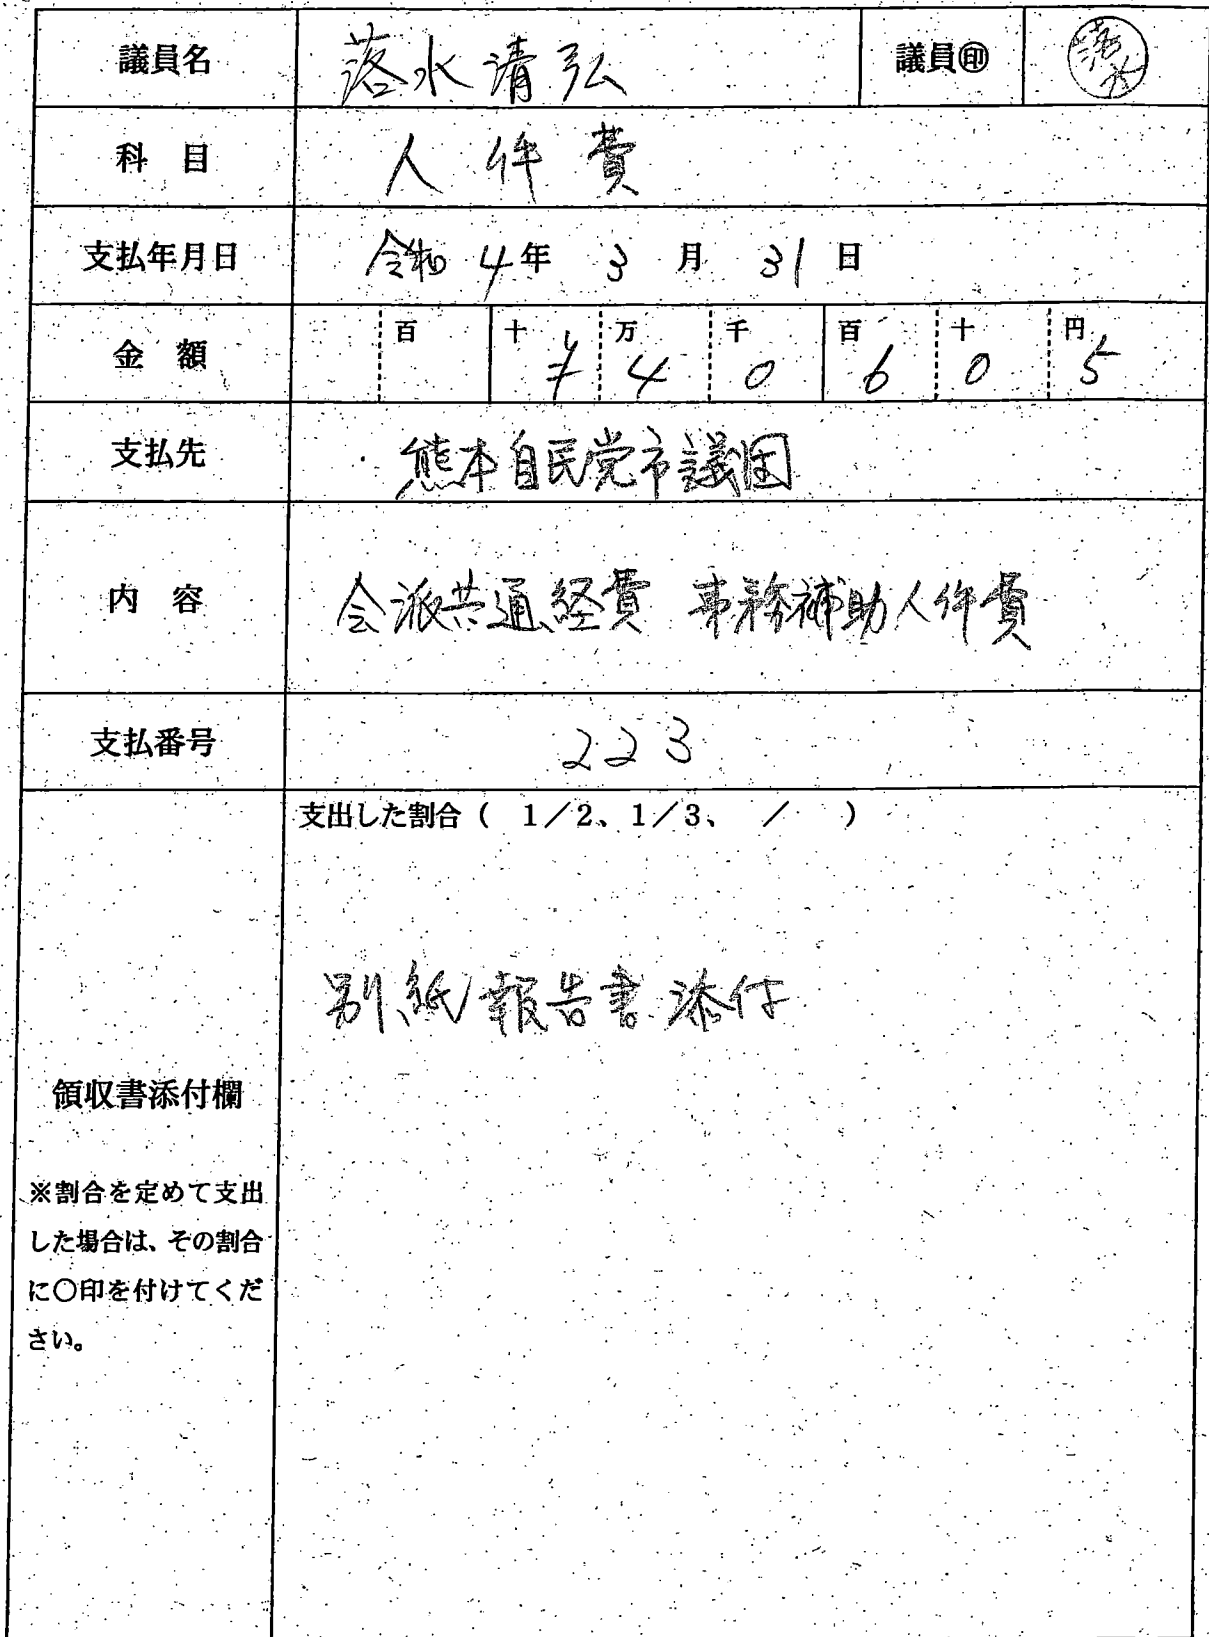 議員名 落水清弘 議員㊞ 落水
科 目 人件費
支払年月日 令和 4年 3月 31日
百 十 万 千 百 十 円
金 額 ¥ 4 0 6 0 5
支払先 熊本自民党市議団
内 容 会派共通経費 事務補助人件費
支払番号 223
支出した割合( 1/2、1/3、 / )
別紙報告書添付
領収書添付欄
※割合を定めて支出
した場合は、その割合
に〇印を付けてくだ
さい。